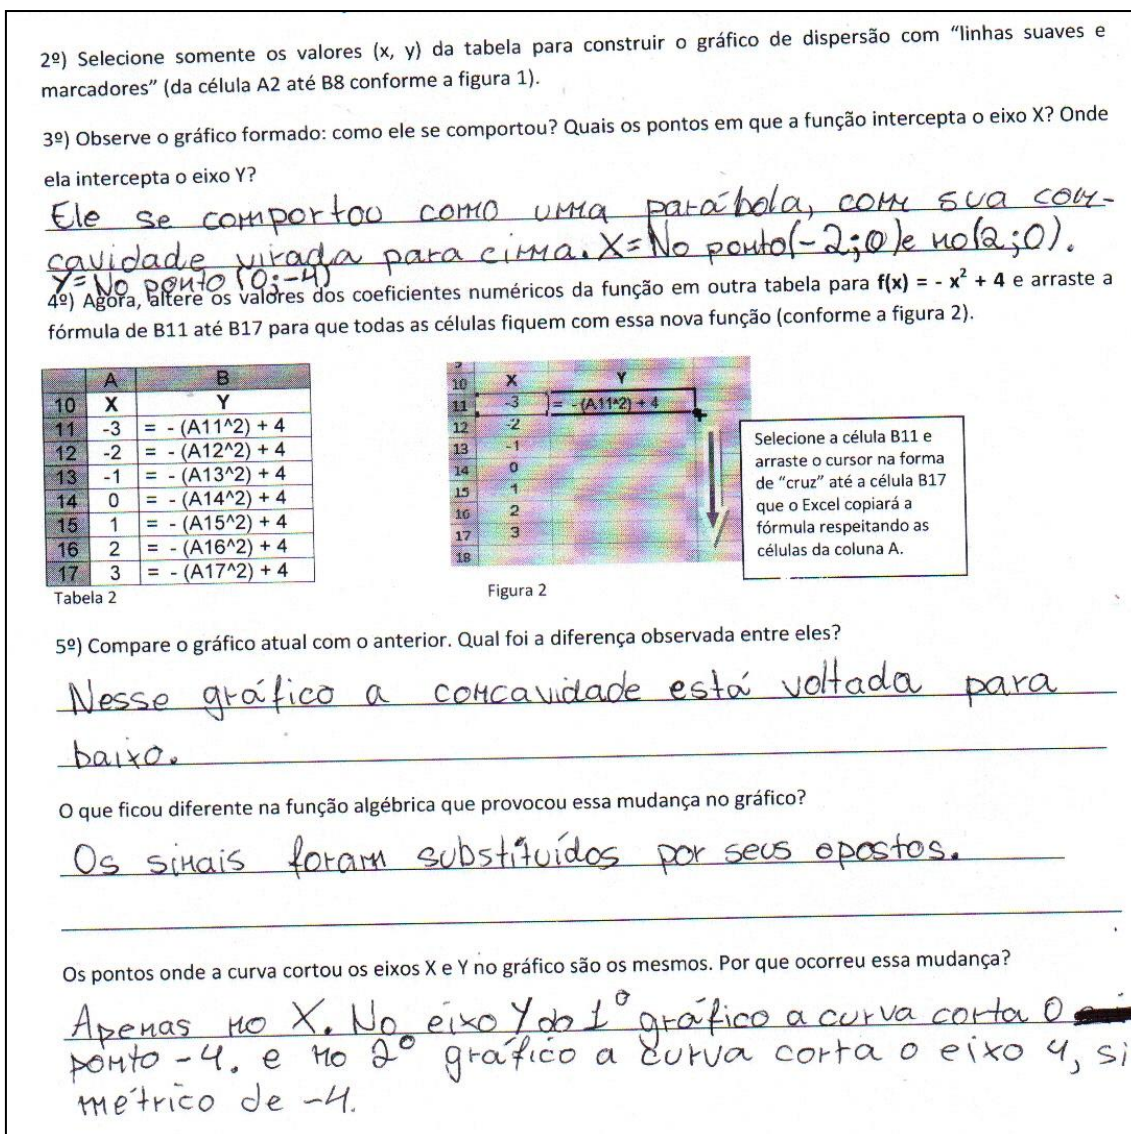 2º) Selecione somente os valores (x, y) da tabela para construir o gráfico de dispersão com "linhas suaves e
marcadores" (da célula A2 até B8 conforme a figura 1).
3º) Observe o gráfico formado: como ele se comportou? Quais os pontos em que a função intercepta o eixo X? Onde
ela intercepta o eixo Y?
Ele se comportou como uma parábola, com sua con-
cavidade virada para cima. X= No ponto(-2;0)e no(2;0).
Y= No ponto (0;-4)
4º) Agora, altere os valores dos coeficientes numéricos da função em outra tabela para f(x) = - x² + 4 e arraste a
fórmula de B11 até B17 para que todas as células fiquem com essa nova função (conforme a figura 2).
A B
10 X Y
11 -3 = - (A11^2) + 4
12 -2 = - (A12^2) + 4
13 -1 = - (A13^2) + 4
14 0 = - (A14^2) + 4
15 1 = - (A15^2) + 4
16 2 = - (A16^2) + 4
17 3 = - (A17^2) + 4
Tabela 2
9
10 X Y
11 -3 = -(A11^2) + 4
12 -2
13 -1
14 0
15 1
16 2
17 3
18
Figura 2
Selecione a célula B11 e
arraste o cursor na forma
de "cruz" até a célula B17
que o Excel copiará a
fórmula respeitando as
células da coluna A.
5º) Compare o gráfico atual com o anterior. Qual foi a diferença observada entre eles?
Nesse gráfico a concavidade está voltada para
baixo.
O que ficou diferente na função algébrica que provocou essa mudança no gráfico?
Os sinais foram substituídos por seus opostos.
Os pontos onde a curva cortou os eixos X e Y no gráfico são os mesmos. Por que ocorreu essa mudança?
Apenas no X. No eixo Y do 1º gráfico a curva corta o
ponto -4. e no 2º gráfico a curva corta o eixo 4, si
métrico de -4.